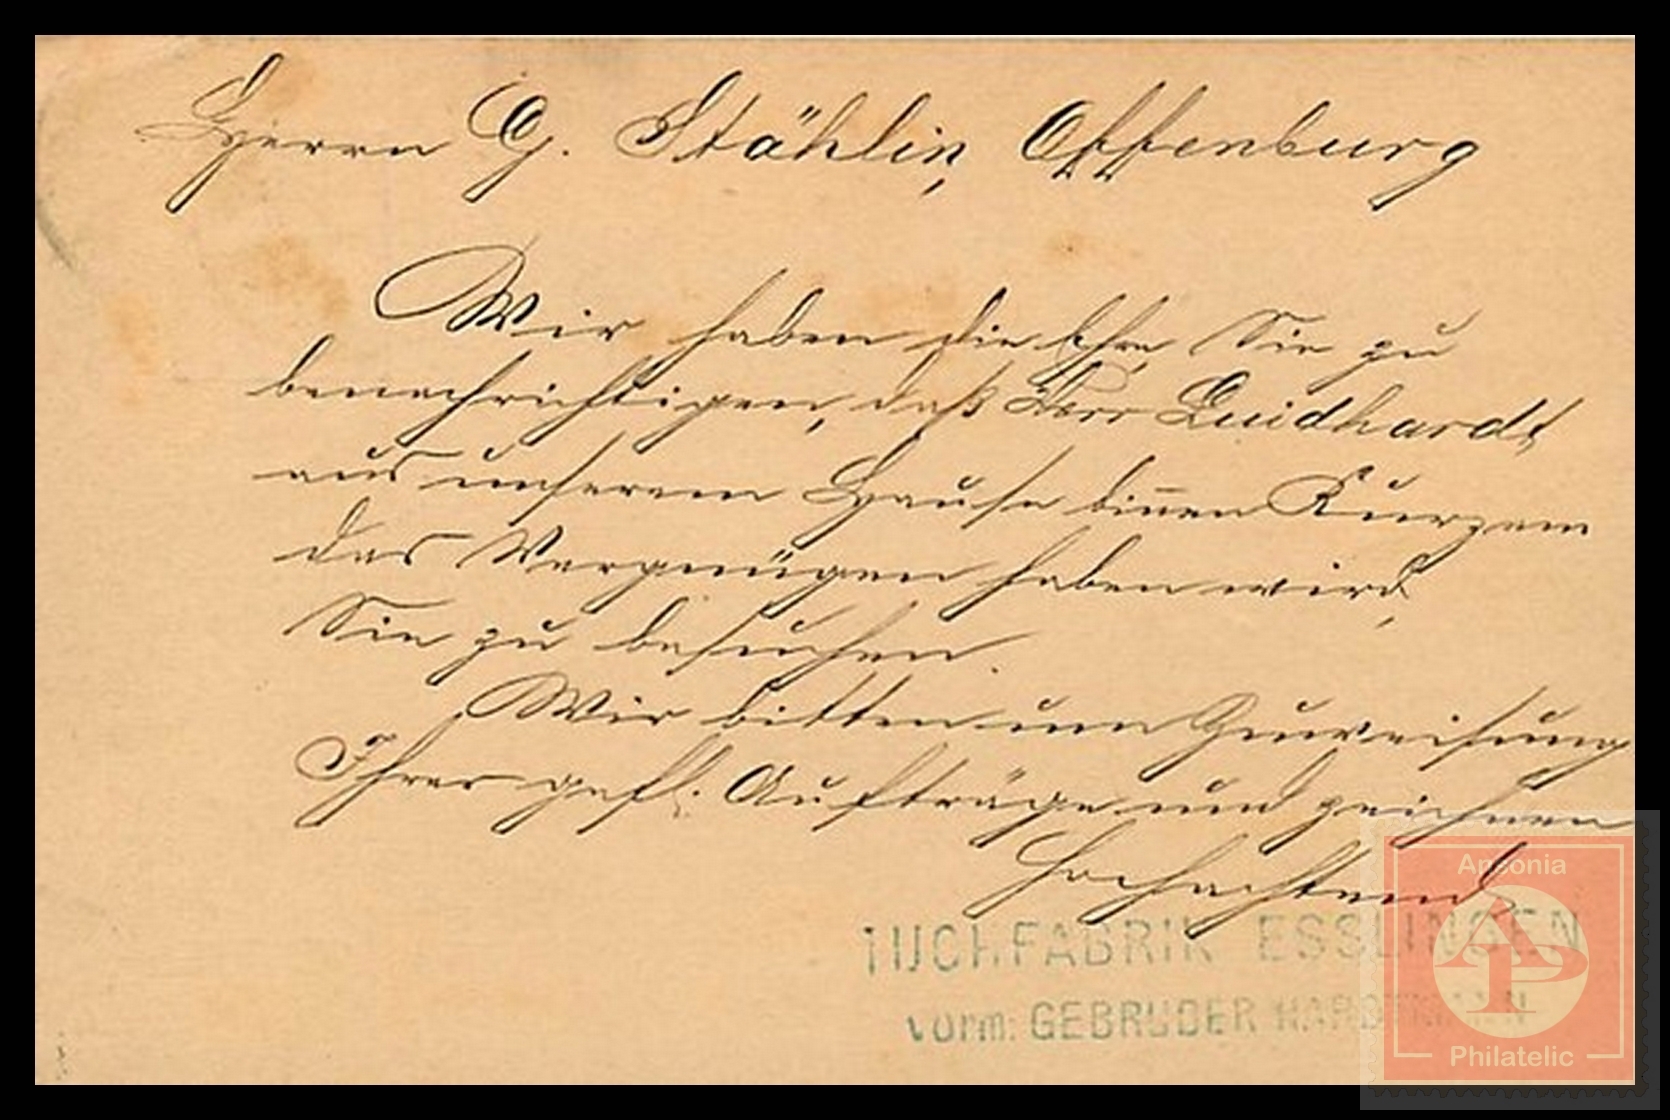 Herrn G. Stählin, Offenburg
Wir haben die Ehre Sie zu
benachrichtigen, daß Herr Luidhardt
aus unserem Hause biñen Kurzem
das Vergnügen haben wird,
Sie zu besuchen.
Wir bitten um Zuweisung
Ihrer gefl. Aufträge und zeichnen
Hochachtend
TUCHFABRIK ESSLINGEN
vorm: GEBRÜDER
Ansonia
AP
Philatelic